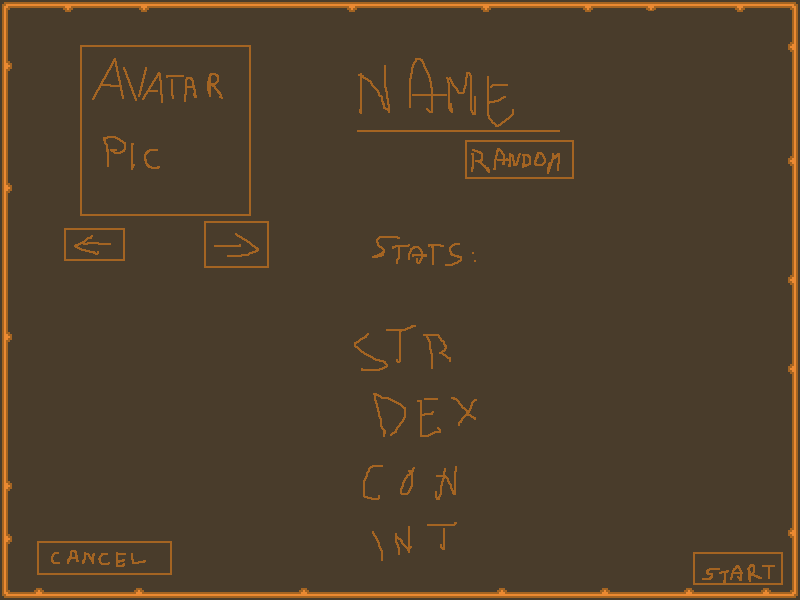 AVATAR
PIC
NAME
RANDOM
STATS:
STR
DEX
CON
INT
CANCEL
START